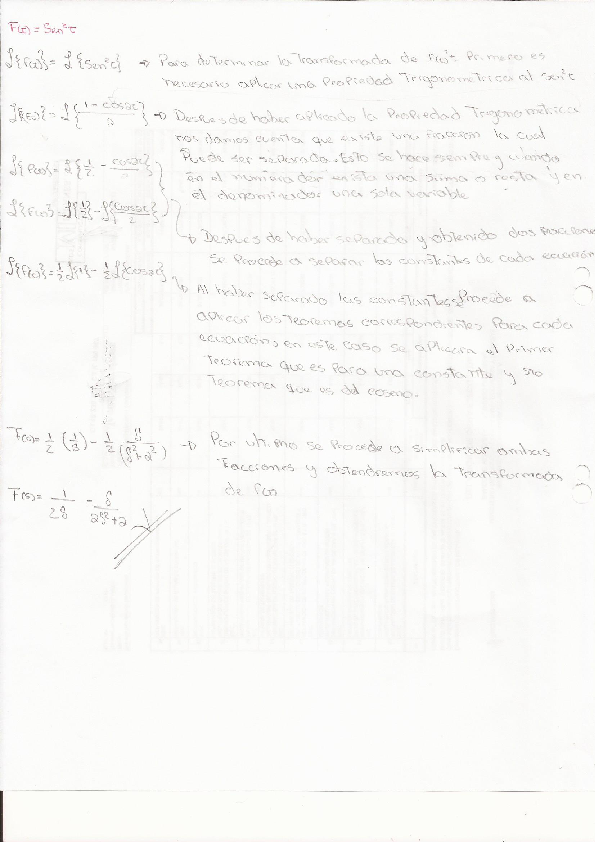 F(t) = Sen²t
ℒ{F(t)} = ℒ{Sen²t} → Para determinar la Transformada de F(t) Primero es
necesario aplicar una Propiedad Trigonometrica al Sen²t
ℒ{F(t)} = ℒ{(1 - cos2t)/2} → Despues de haber aplicado la Propiedad Trigonometrica
nos damos cuenta que existe una fraccion la cual
Puede ser separada. Esto se hace siempre y cuando
ℒ{F(t)} = ℒ{1/2 - cos2t/2}
en el numerador exista una suma o resta y en
el denominador una sola variable
ℒ{F(t)} = ℒ{1/2} - ℒ{cos2t/2}
→ Despues de haber separado y obtenido dos fracciones
se Procede a separar las constantes de cada ecuación
ℒ{F(t)} = 1/2 ℒ{1} - 1/2 ℒ{cos2t}
→ Al haber separado las constantes Procede a
aplicar los teoremas correspondientes Para cada
ecuación, en este caso se aplicara el Primer
Teorema que es Para una constante y
Teorema que es del coseno.
F(s) = 1/2 (1/s) - 1/2 s/(s²+2²) → Por ultimo se Procede a simplificar ambas
Facciones y obtendremos la transformada
de F(t)
F(s) = 1/2s - s/2s²+2